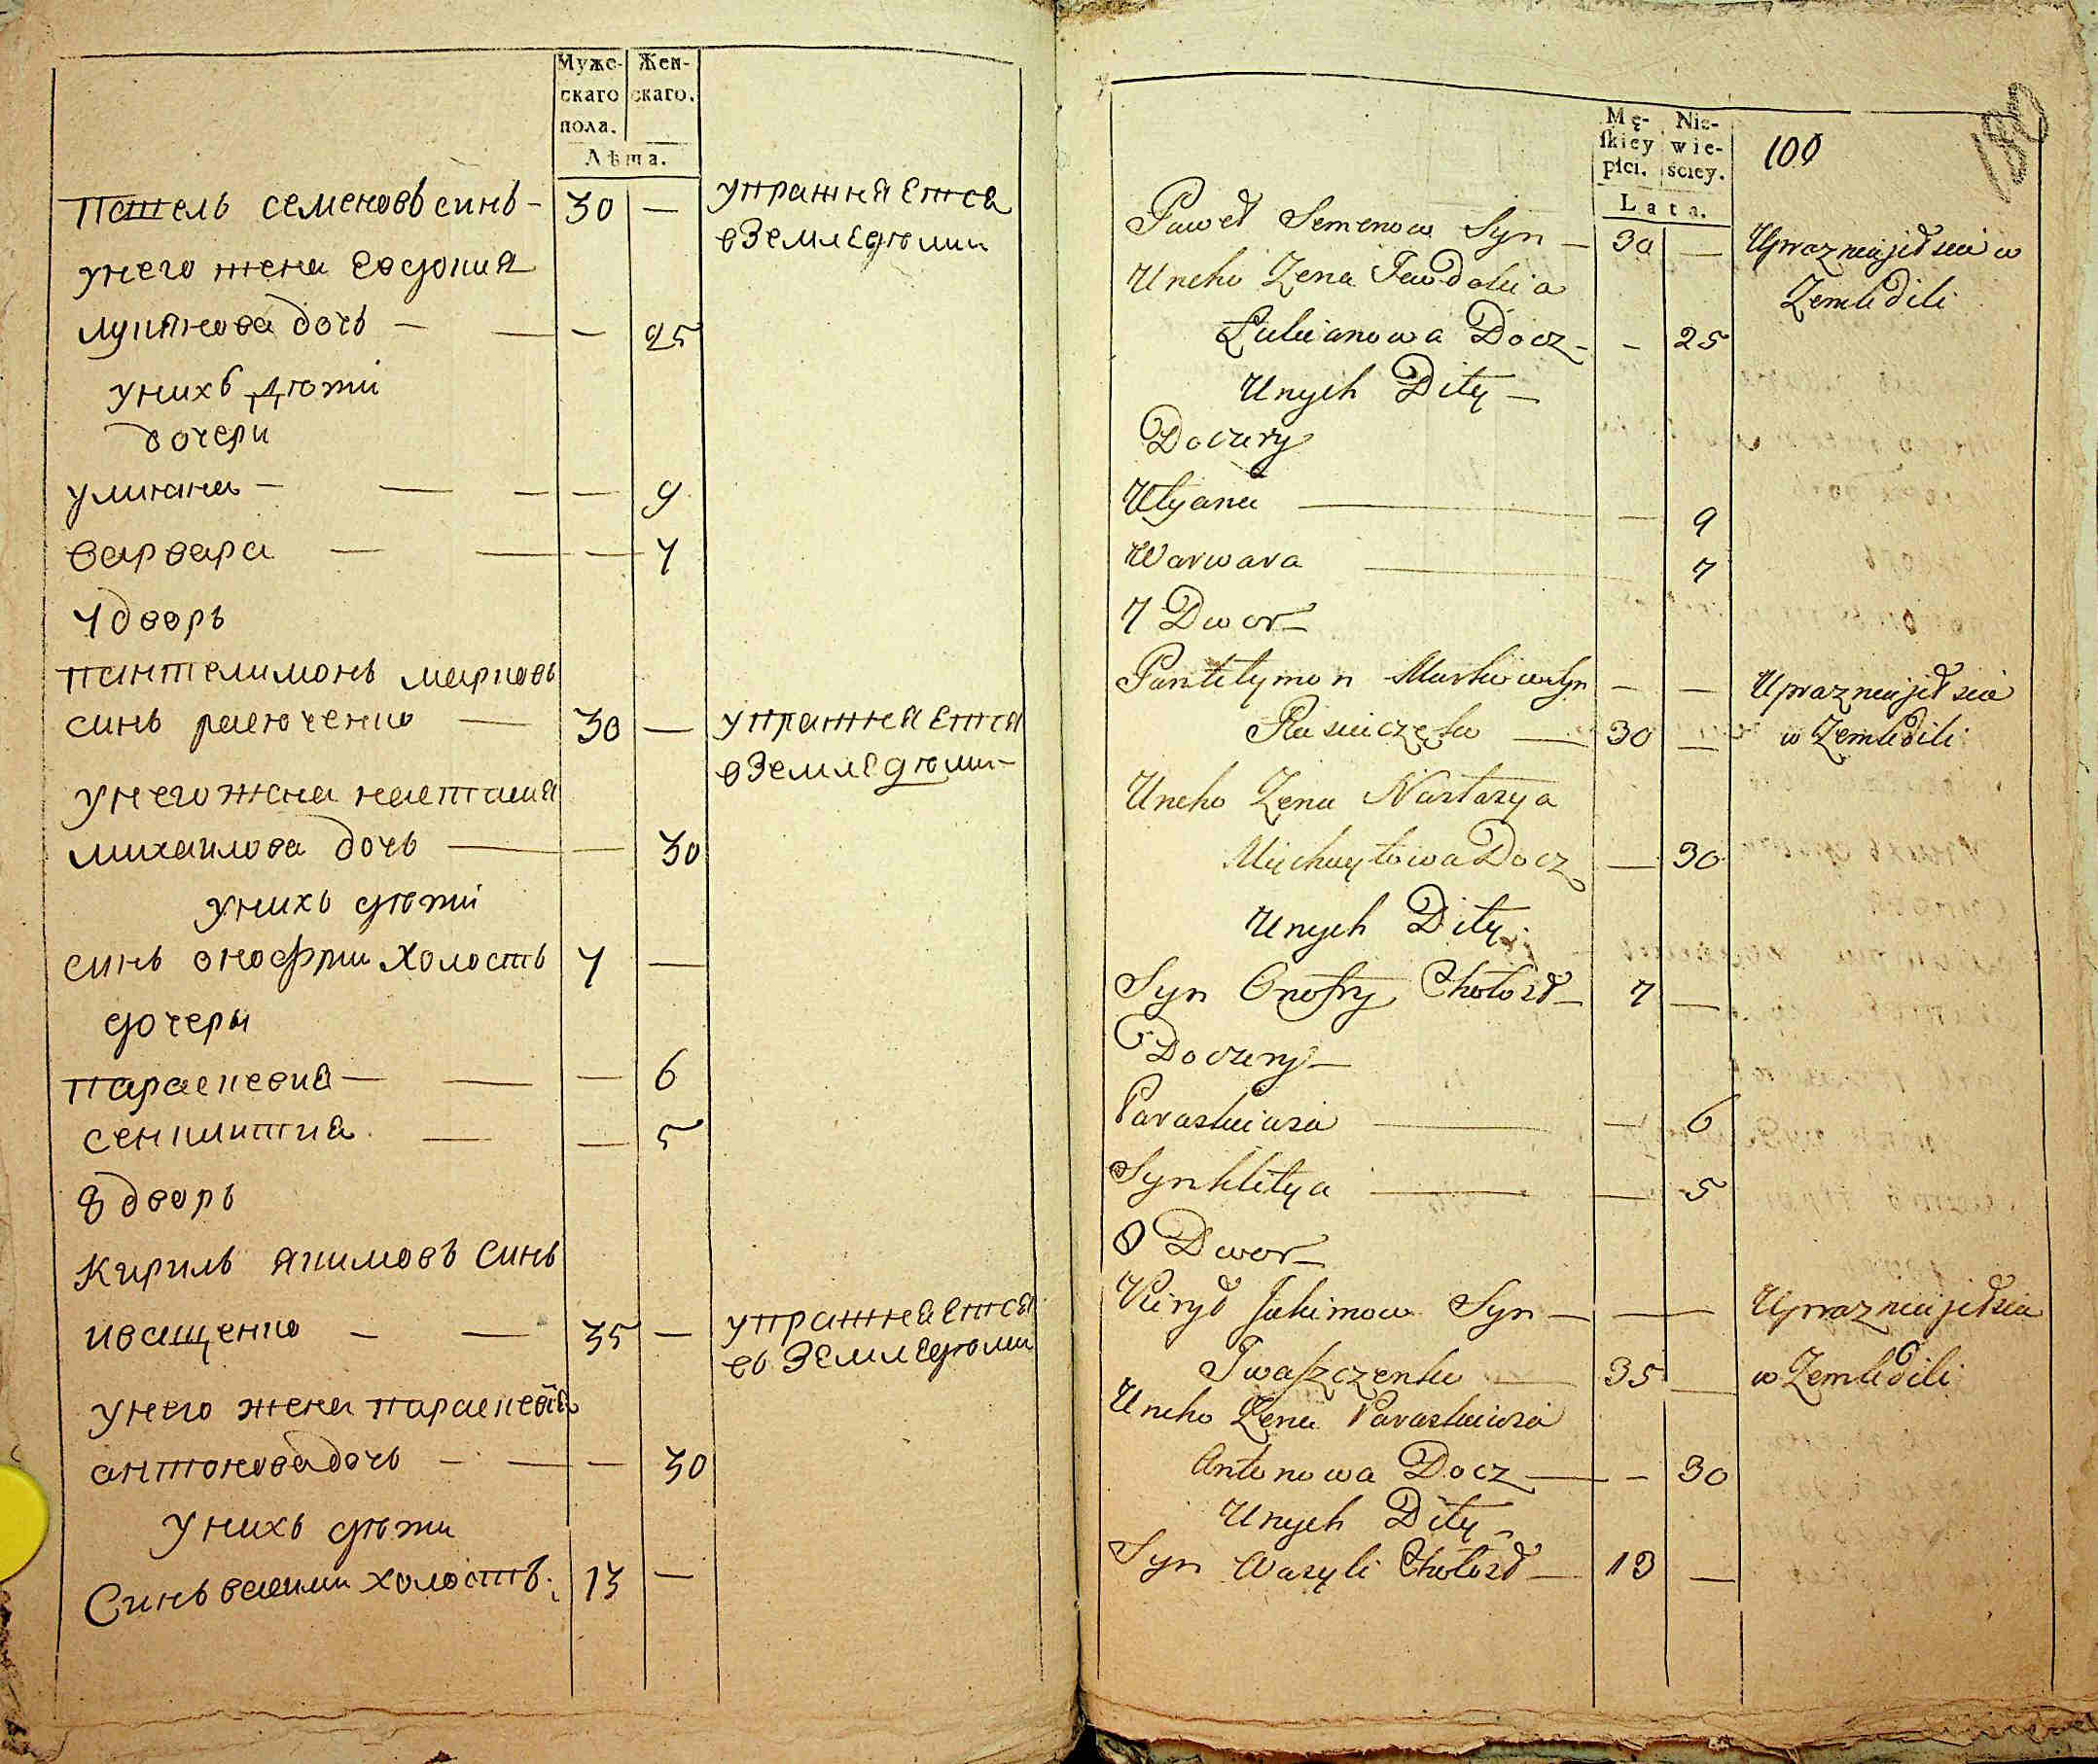 Мужс- Жен-
скаго скаго.
пола.
Лѣта.
Павель семеновъ синъ - 30 —
упражняется
в Земледѣлии
унего жена Евдокия
лукянова дочь — — — 25
унихъ дѣти
дочери
улияна — — — — 9
варвара — — — 7
7 дворъ
пантелимонъ марковъ
синъ расюченко — 30 — упражняется
в Земледѣлии —
унего жена настасия
михаилова дочь — — 30
унихъ дѣти
синъ онофрии холостъ 7 —
дочеры
параскевия — — — 6
сенклития — — 5
8 дворъ
Кирилъ якимовъ синъ
иващенко — — 35 — упражняется
въ Земледѣлии
унего жена параскевия
антонова дочь — — — 30
унихъ дѣти
Синъ василии холостъ. 13 —
Mę- Nie-
skiey wie-
płci. sciey.
Lata.
100
180
Paweł Semenow Syn — 30 — Uprazniajetsia w
Zemledili
Uneho Zena Jewdokia
Łukianowa Docz - - 25
Unych Dity —
Doczery
Ulyana — — 9
Warwara — 7
7 Dwor —
Pantelymon Markow Syn — — Uprazniajetsia
Rasiuczenko — 30 — w Zemledili
Uneho Zena Nastazya
Mychayłowa Docz — 30
Unych Dity.
Syn Onofry Chołost — 7 —
Doczery —
Paraskiwia — — 6
Synklitya — — 5
8 Dwor —
Kirył Jakimow Syn — — Uprazniajetsia
Iwaszczenko — 35 — w Zemledili
Uneho Zena Paraskiwia
Antonowa Docz — - 30
Unych Dity —
Syn Wasyli Chołost — 13 —